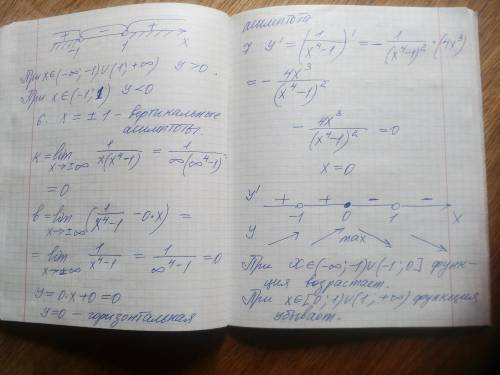 + - +
-1 1 x
При x∈(-∞;-1)∪(1;+∞) y>0.
При x∈(-1;1) y<0
6. x = ±1 - вертикальные
асимптоты
к = lim x→±∞ 1/(x(x⁴-1)) = 1/(∞(∞⁴-1)) =
= 0
b = lim x→±∞ (1/(x⁴-1) - 0·x) =
= lim x→±∞ 1/(x⁴-1) = 1/(∞⁴-1) = 0
y = 0·x + 0 = 0
y=0 - горизонтальная
асимптота
7 y' = (1/(x⁴-1))' = - 1/(x⁴-1)² · (4x³)
= - 4x³/(x⁴-1)²
- 4x³/(x⁴-1)² = 0
x = 0
y' + + - -
-1 0 1 x
y max
При x∈(-∞;-1)∪(-1;0] функ-
ция возрастает.
При x∈[0;1)∪(1;+∞) функция
убывает.